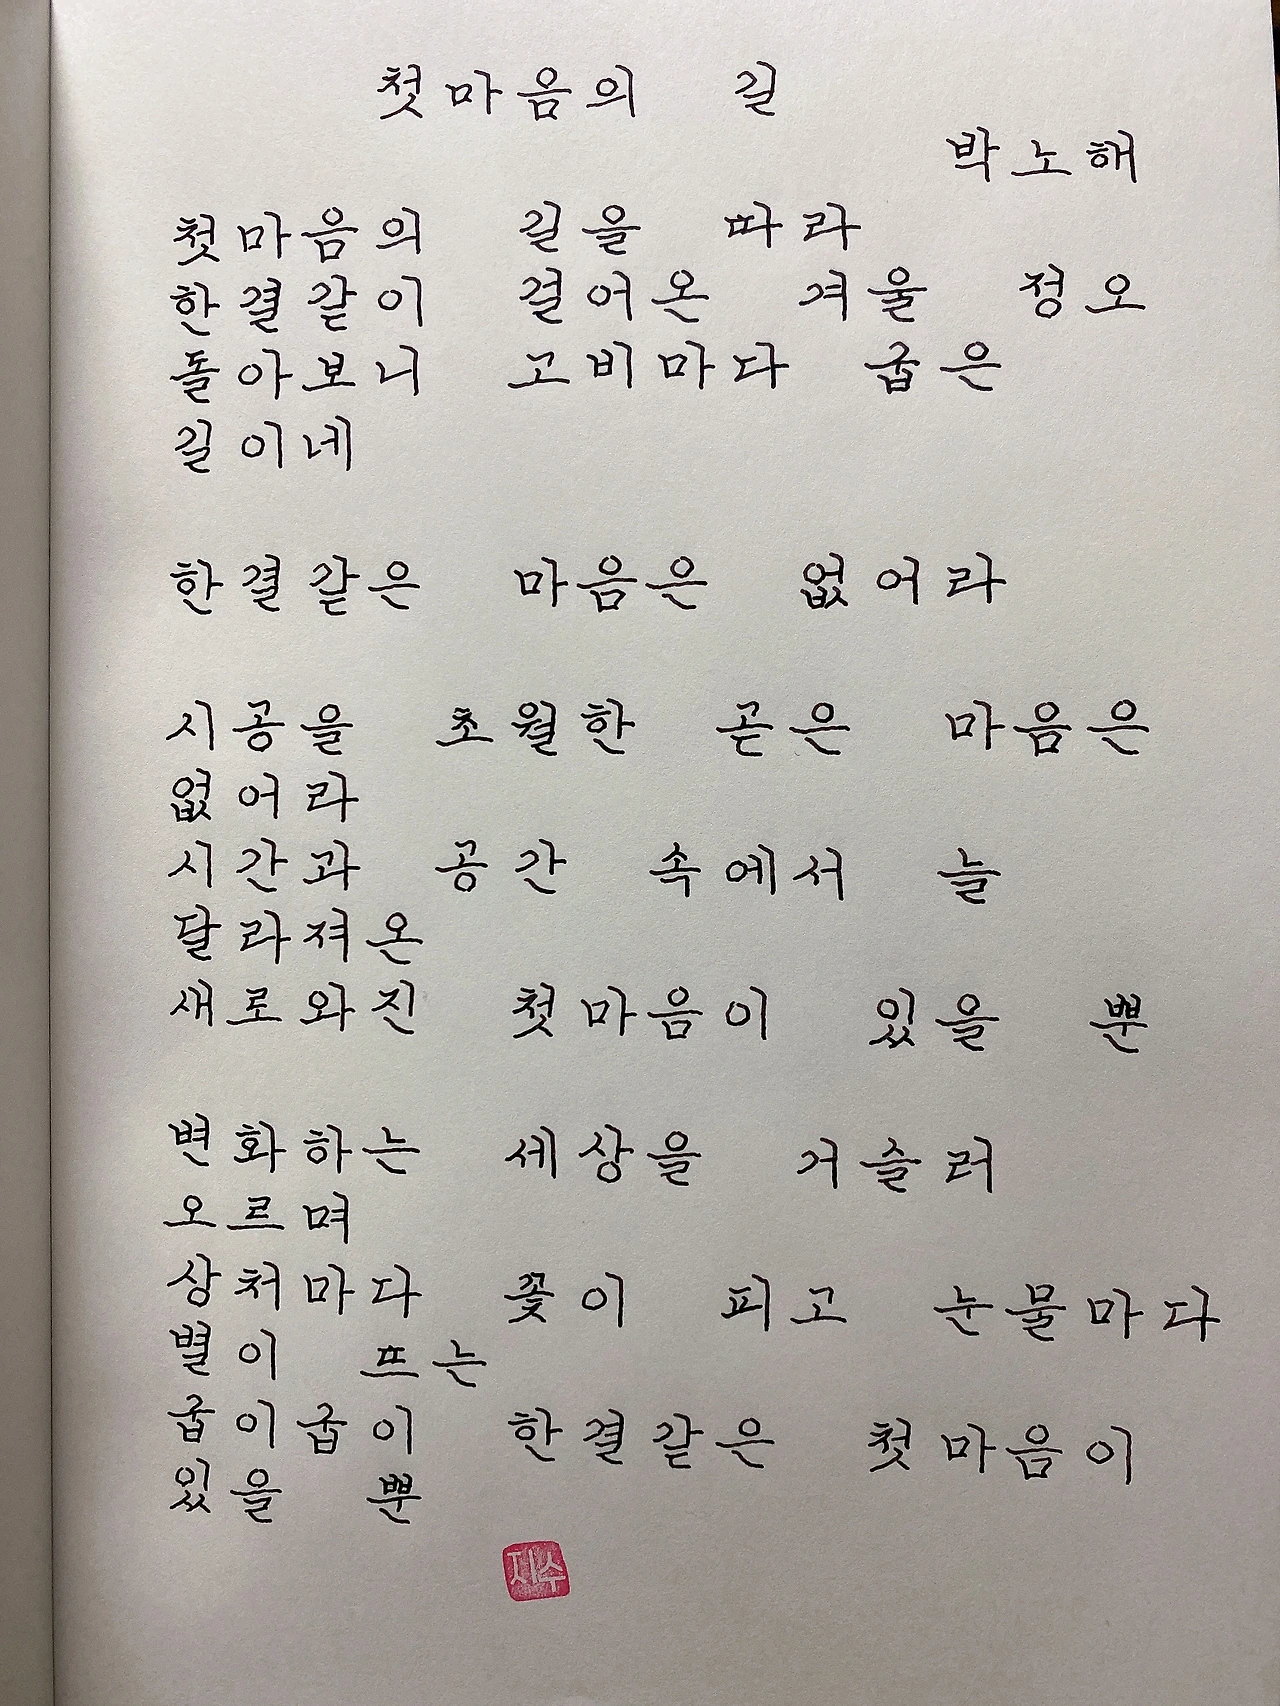 첫마음의 길
박노해
첫마음의 길을 따라
한결같이 걸어온 겨울 정오
돌아보니 고비마다 굽은
길이네
한결같은 마음은 없어라
시공을 초월한 곧은 마음은
없어라
시간과 공간 속에서 늘
달라져온
새로와진 첫마음이 있을 뿐
변화하는 세상을 거슬러
오르며
상처마다 꽃이 피고 눈물마다
별이 뜨는
굽이굽이 한결같은 첫마음이
있을 뿐
지수